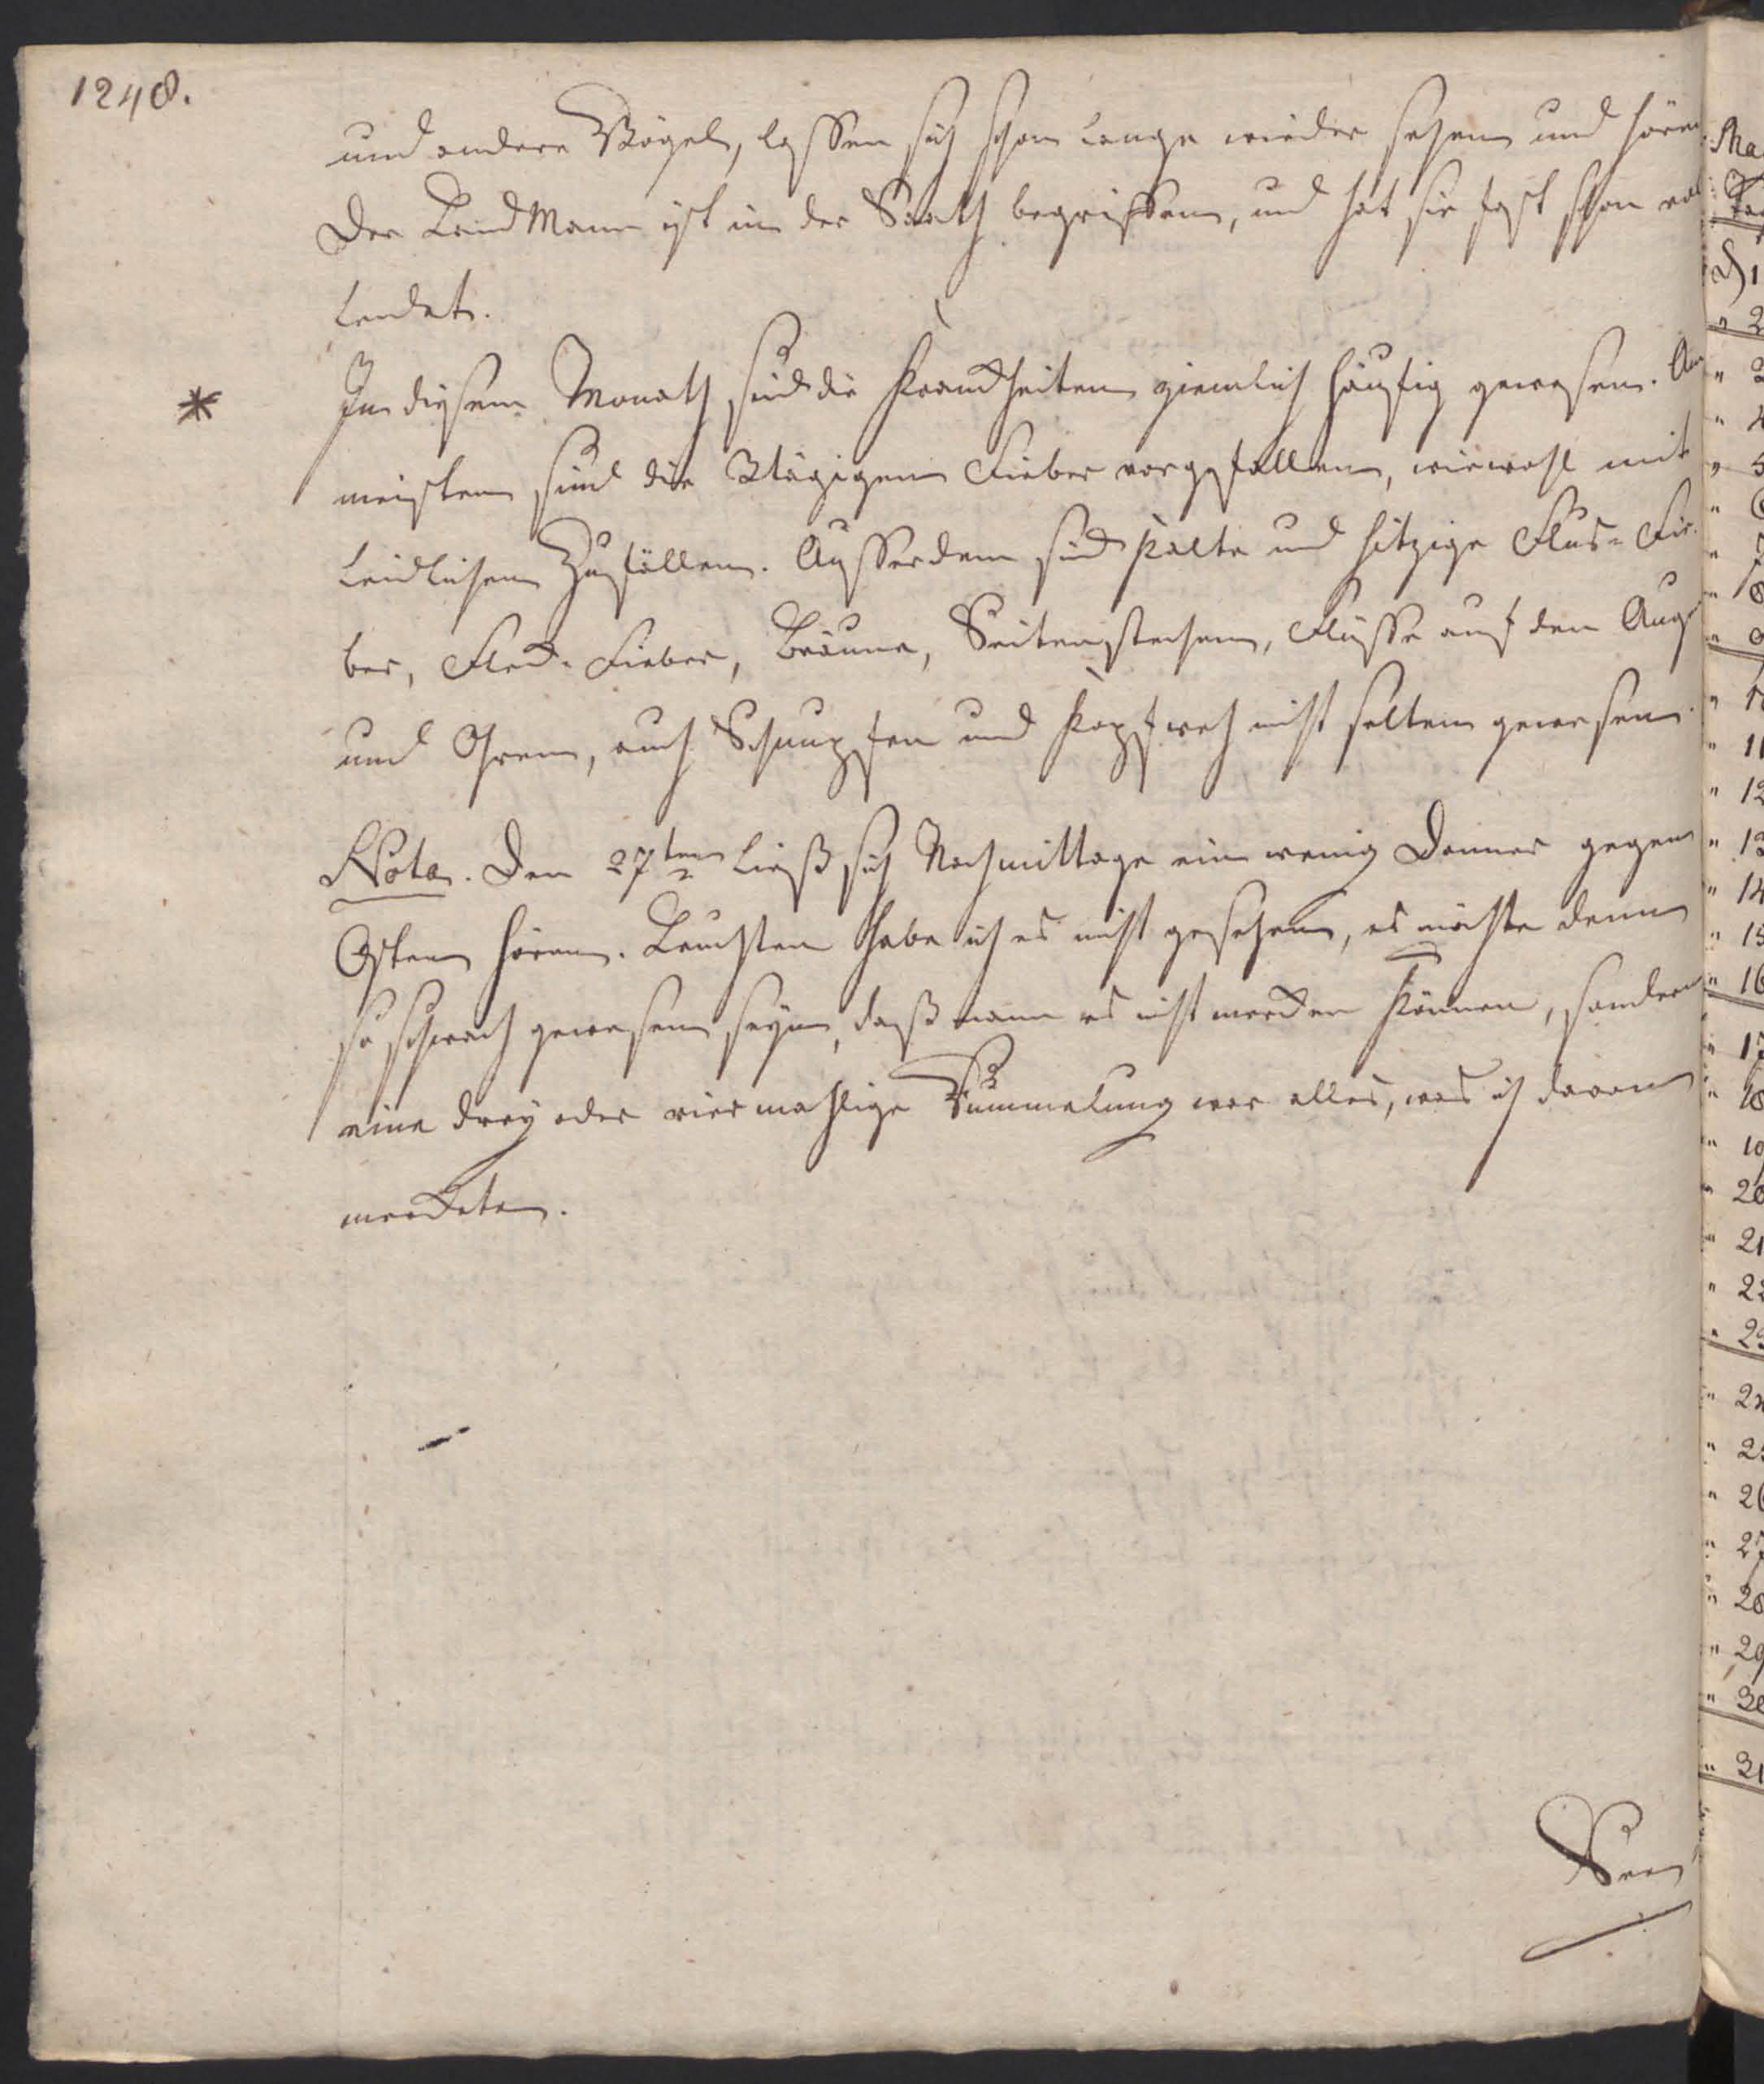 1248.
und andere Vögel, lassen sich schon lange wieder sehen und hören.
Der Land Mann ist in der Saath begriffen, und hat sie fast schon vol
lendet.
* In diesem Monath sind die Kranckheiten ziemlich häufig gewesen. Am
meisten sind die 3tägigen Fieber vorgefallen, wiewohl mit
leidlichen Zufällen. Ausserdem sind kalte und hitzige Flus- Fie-
ber, Fleck-Fieber, Bräune, Seitenstechen, Flüsse auf den Augen
und Ohren, auch Schnupfen und Kopfweh nicht selten gewesen.
Nota. Den 27ten ließ sich Nachmittage ein wenig Donner gegen
Osten hören. Leuchten habe ich es nicht gesehen, es möchte denn
so schwach gewesen seyn, daß man es nicht mercken können, sondern
eine drey oder viermahlige Tummelung war alles, was ich davon
merckete.
Ma
1
2
3
4
5
6
7
8
9
10
11
12
13
14
15
16
17
18
19
20
21
22
23
24
25
26
27
28
29
30
31